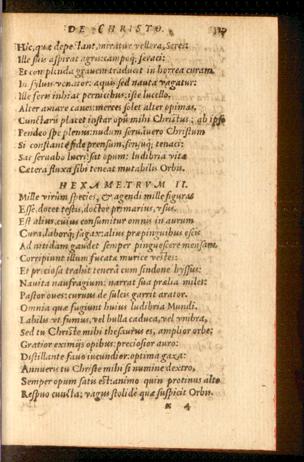 DE CHRISTO.
Hic, quæ depe tant, miratur vellera, Seres:
Ille suis aspirat agris: campoq; feraci:
Et complenda grauem traducit in horrea curam.
In syluis venator: aquis sed nauta vagatur:
Ille feris inhiat pernicibus: iste lucello.
Alter amare canes: merces solet alter opimas,
Cunctarū placet instar opū mihi Christus; ab ipso
Pendeo spe plenus: nudum seruauero Christum
Si constante fide prensum, fensumq; tenaci:
Sat seruabo lucri: sat opum: ludibria vitæ
Cætera fluxa sibi teneat mutabilis Orbis.
HEXAMETRVM II.
Mille virûm species, & agendi mille figuras
Esse, docet testis, doctor primarius, vsus.
Est alius, cuius consumitur omnis in aurum
Cura, laborq; sagax: alius præpinguibus escis
Ad nitidam gaudet semper pinguescere mensam.
Corripiunt illum fucatæ murice vestes:
Et preciosa trahit tenerâ cum sindone byssus:
Nauita naufragium: narrat sua prælia miles:
Pastor oues: curuus de sulcis garrit arator.
Omnia quæ fugiunt huius ludibria Mundi,
Labilis vt fumus, vel bulla caduca, vel vmbra,
Sed tu Christe mihi thesaurus es, amplior orbe;
Gratior eximijs opibus: preciosior auro:
Distillante fauo iucundior: optima gaza:
Annueris tu Christe mihi si numine dextro,
Semper opum satis est: animo quin protinus alto
Respuo cuncta; vagus stolidè quæ suspicit Orbis.
K 4